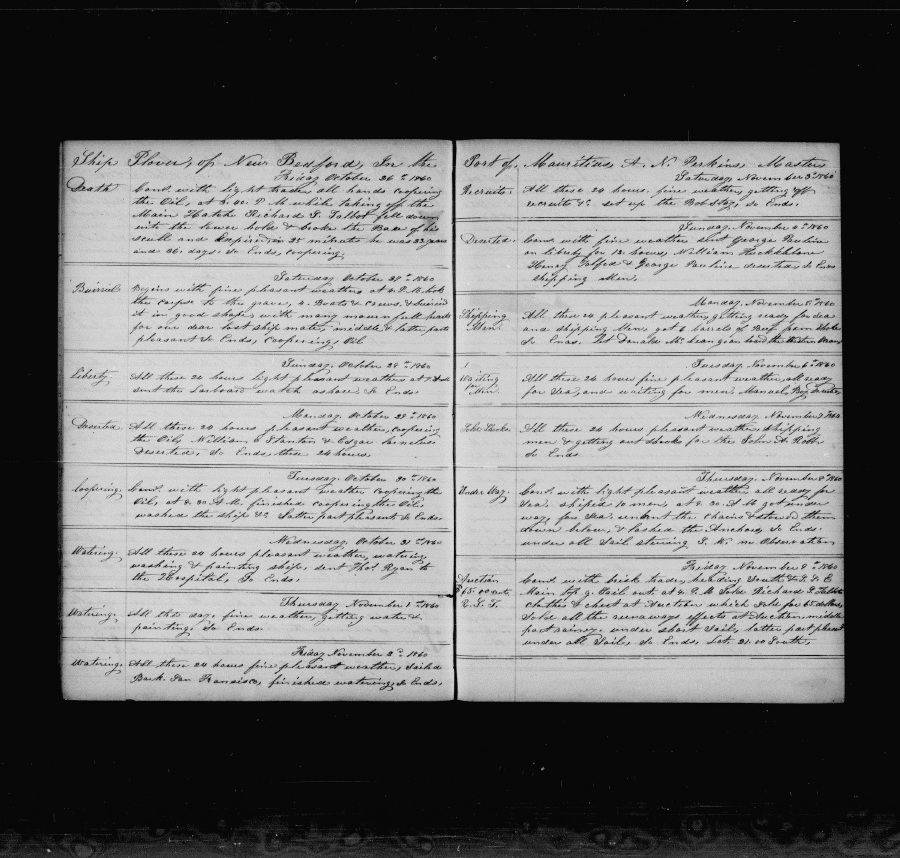 Ship Plover, of New Bedford, In the
Friday October 26th 1860
Death Coms. with light trades all hands coopering
the Oil, at 3. 40. P. M while taking off the
Main Hatch Richard G. Talbot fell down
into the lower hold & broke the Base of his
scull and Expired, in 25 minutes he was 23 years
and days. So Ends, coopering
Saturday October 27th 1860
Burriel Begins with fine pleasant weather, at 4. P. M. took
the corps to the grave, 4. Boats & Crews, &
it in good shape with many mournfull hearts
for our dear lost ship mate, middle & latter parts
pleasant So Ends, Coopering Oil
Sunday, October 28th 1860
Liberty All these 24 hours light pleasant weather
sent the Larboard watch ashore. So Ends
Monday, October 29th 1860
Deserted All these 24 hours pleasant weather, coopering
the Oil, William Stanton & Edgar
Deserted, So Ends these 24 hours.
Tuesday, October 30th 1860
Coopering. Coms. with light pleasant weather coopering the
Oil, at 8. 30 A M. finished coopering the Oil,
washed the ship &c Latter part pleasent So Ends.
Wednesday, October 31st 1860
Watering. All these 24 hours pleasant weather, watering
washing & painting ship, sent Thos Ryan to
the Hospital, So Ends.
Thursday November 1st 1860
Watering. All this day, fine weather, getting water &
painting, So Ends.
Friday November 2d 1860
Watering. All these 24 hours fine pleasant weather, Sailed
Bark. San Fransisco, finished watering, So Ends.
Port of, Mauritius, A. N. Perkins, Master
Saturday, November 3d 1860
Recruits. All these 24 hours. fine weather, getting off
recruits &c set up the Bobstay, So Ends.
Sunday, November 4th 1860
Deserted. Coms. with fine weather sent George Pauline
on liberty for 12. hours, William
Henry & George Pauline deserted, So Ends
shipping Men.
Monday, November 5th 1860
Shipping Men. All these 24 pleasant weather, getting ready for sea
and shipping Men got 6 barrels of Beef from
So Ends.
Tuesday, November 6th 1860
Waiting for Men. All these 24 hours fine pleasant weather, all ready
for Sea, and waiting for men, Manuel
Wednesday, November 7 1860
Sold Shooks All these 24 hours pleasant weather, shipping
men & getting out shooks for the John A. Robb.
So Ends
Thursday, November 8th 1860
Under Way. Coms. with light pleasant weather all ready for
Sea, shiped 10 men, at 8. 30 A M got under
way for Sea. unbent the Chains & stowed them
down below, & lashed the Anchors So Ends.
under all Sail steering S. W. no Observation
Friday November 9th 1860
Auction $65.00 R. G. T. Coms. with brisk trades, heading South & S. S. E
Main Top g. Sail out. at 4. P. M Sold Richard G. Talbots
clothes & chest at Auction which sold for 65 dollars,
Sold all the runaways effects at Auction, middle
part rainey. under short Sail, latter part pleasent
under all Sail, So. Ends. Late 21. 00 South,